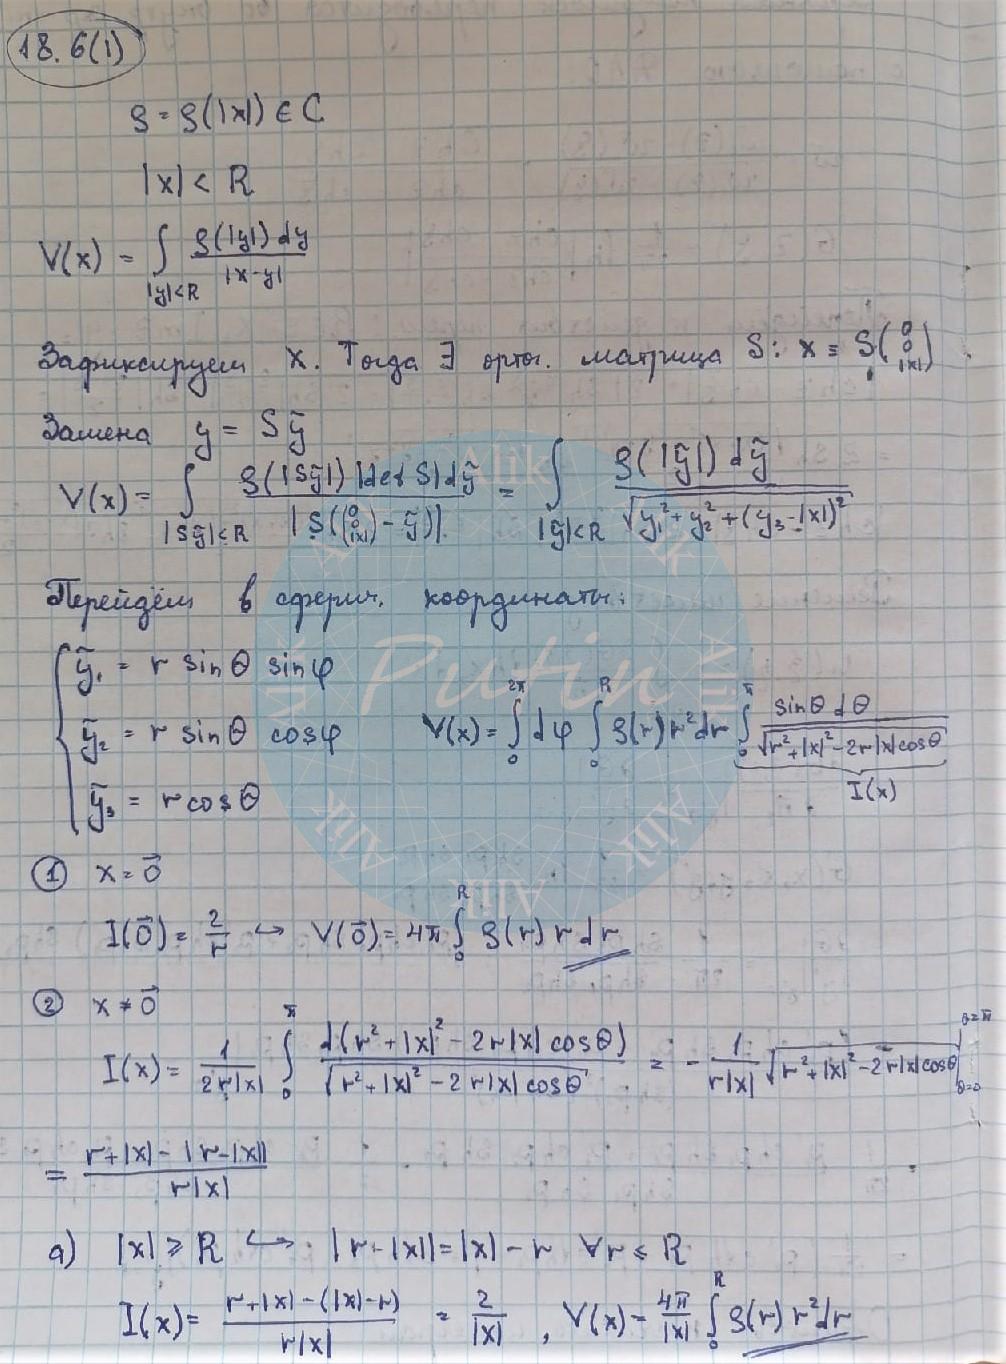 18.6(1)
ρ = ρ(|x|) ∈ C
|x| < R
V(x) = ∫_{|y|<R} ρ(|y|) dy / |x-y|
Зафиксируем x. Тогда ∃ ортог. матрица S: x = S(0 0 |x|)
Замена y = Sỹ
V(x) = ∫_{|Sỹ|<R} ρ(|Sỹ|) |det S| dỹ / |S((0 0 |x|) - ỹ)| = ∫_{|ỹ|<R} ρ(|ỹ|) dỹ / √(y₁² + y₂² + (y₃ - |x|)²)
Перейдём в сферич. координаты:
ỹ₁ = r sinθ sinφ
ỹ₂ = r sinθ cosφ
V(x) = ∫₀^{2π} dφ ∫₀^R ρ(r) r² dr ∫₀^π sinθ dθ / √(r² + |x|² - 2r|x|cosθ)
I(x)
ỹ₃ = r cosθ
① x = 0⃗
I(0⃗) = 2/r ↪ V(0⃗) = 4π ∫₀^R ρ(r) r dr
② x ≠ 0⃗
I(x) = 1/(2r|x|) ∫₀^π d(r² + |x|² - 2r|x| cosθ) / √(r² + |x|² - 2r|x| cosθ) = - 1/(r|x|) √(r² + |x|² - 2r|x| cosθ) |_{θ=0}^{θ=π}
= (r + |x| - |r - |x||) / (r|x|)
а) |x| ≥ R ↪ |r - |x|| = |x| - r ∀r ≤ R
I(x) = (r + |x| - (|x| - r)) / (r|x|) = 2/|x| , V(x) = 4π/|x| ∫₀^R ρ(r) r² dr
Putin
Alik
Alik
Alik
Alik
Alik
Alik
Alik
Alik